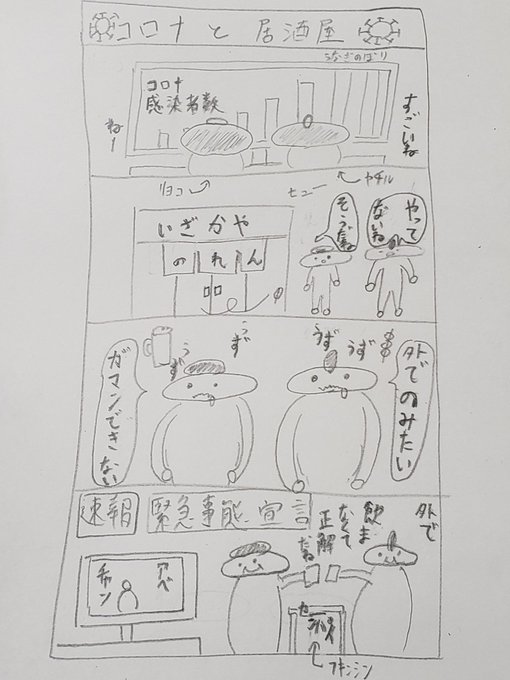 コロナと居酒屋
うなぎのぼり
コロナ
感染者数
すごいね
ねー
リョコ
ヤチル
ヒュー
いざかや
のれん
やって
ないね
そうだね
うず
うず
うず
うず
外でのみたい
ガマンできない
速報 緊急事態宣言
外で
飲ま
なくて
正解
だね
アベ
チャン
フキンシン